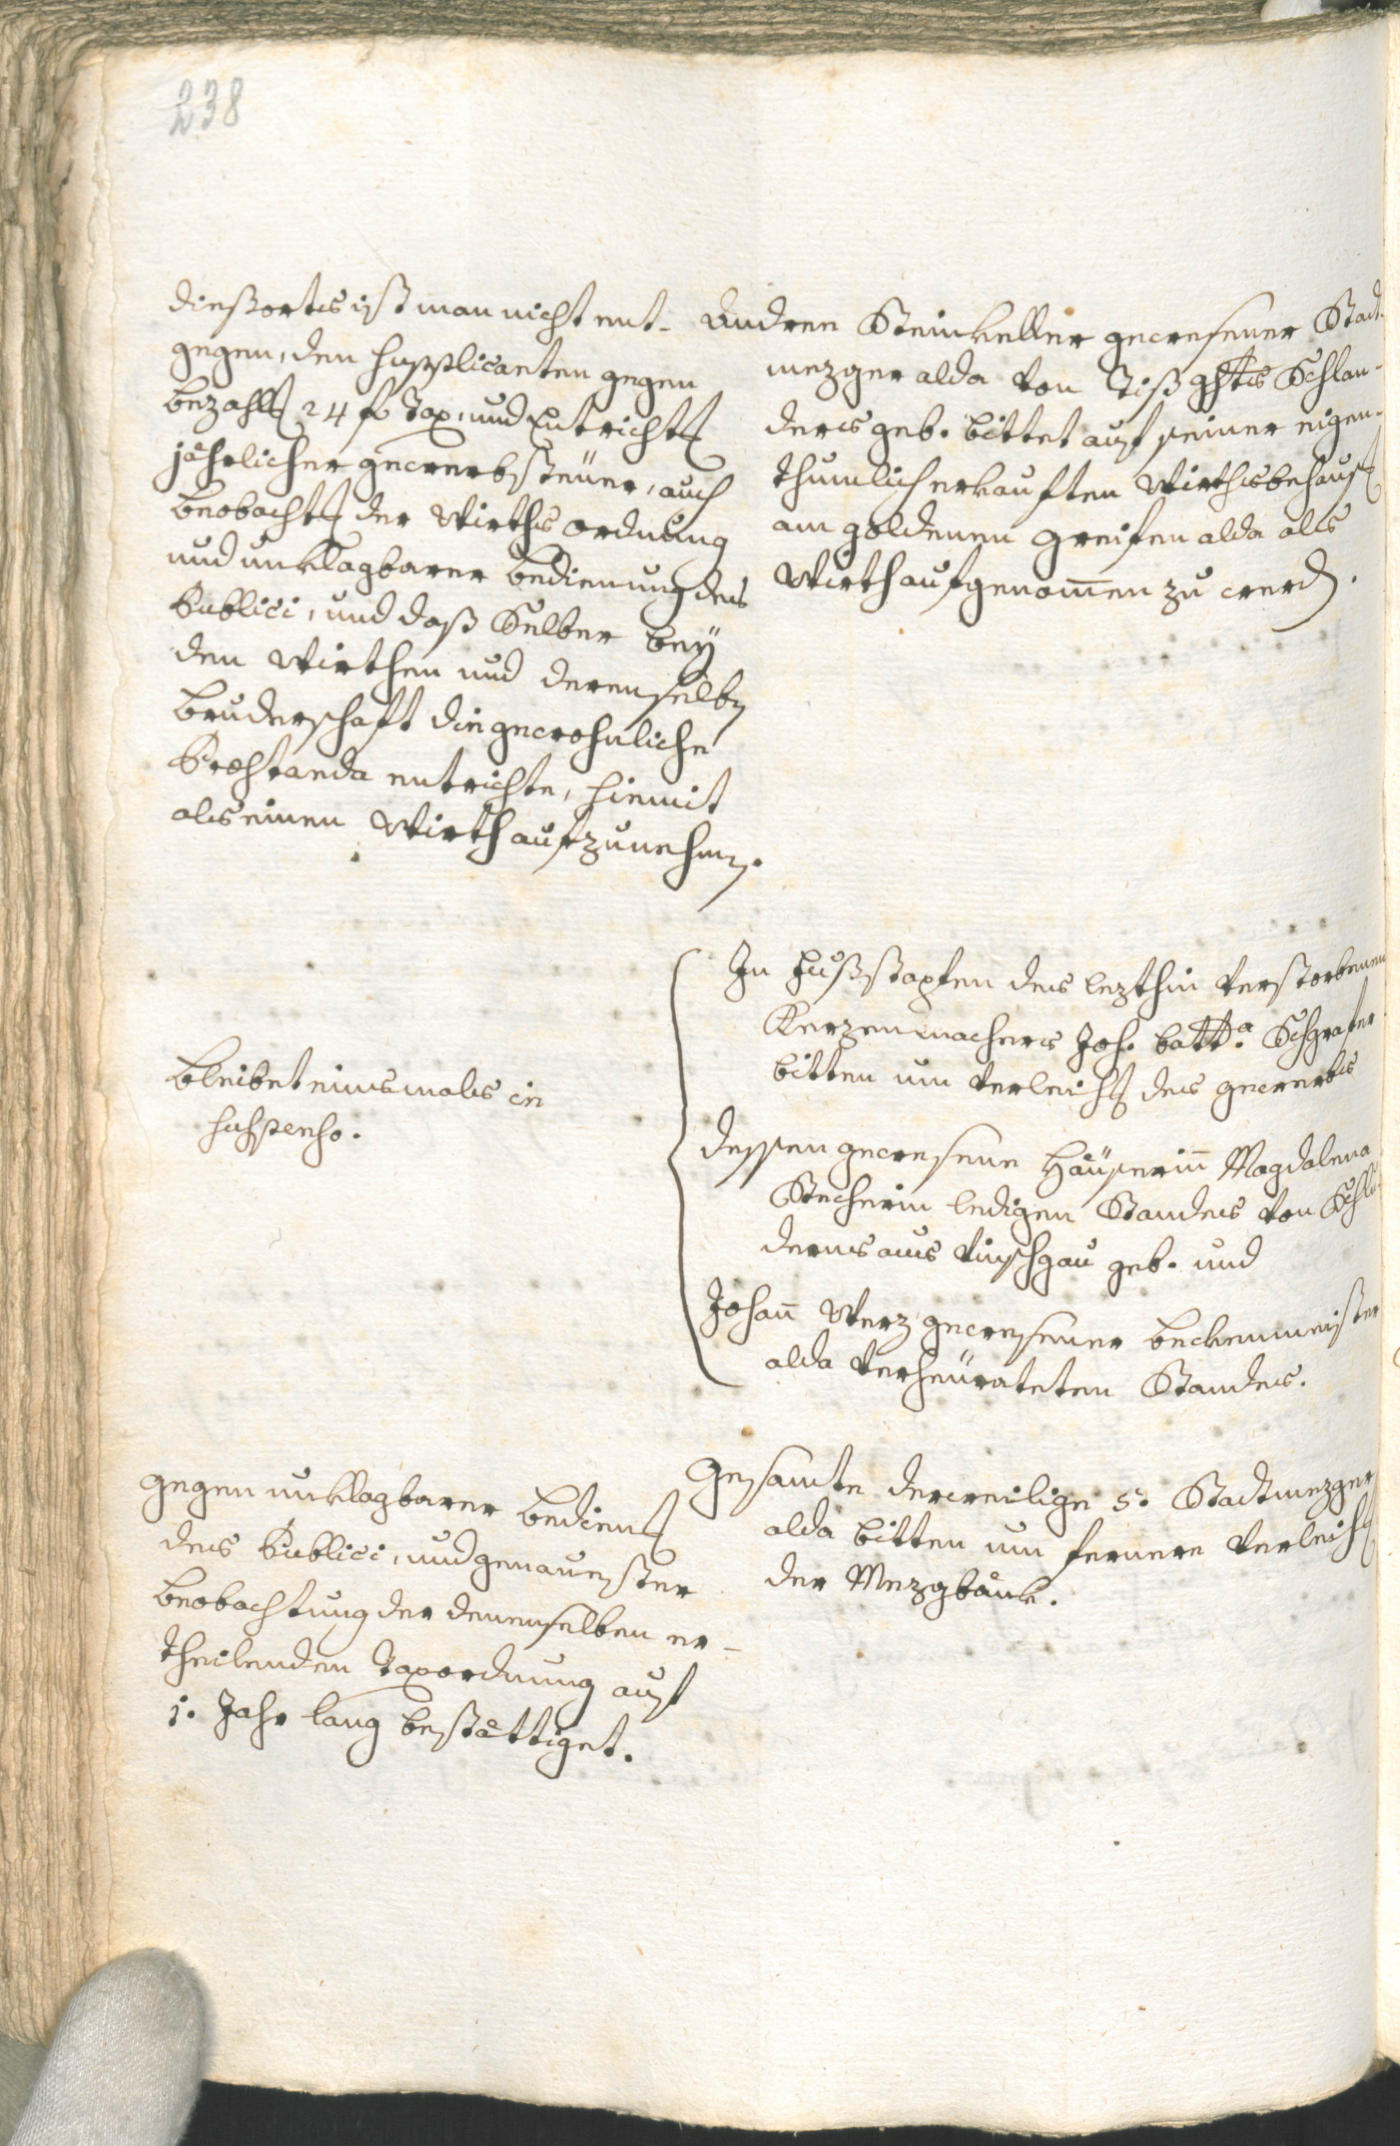 238
diesßorts ist man nicht ent-
gegen, den supplicanten gegen
bezahlg 24 f Tax, und Entrichtg
jährlicher gewerbsteüer, auch
beobachtg der Wirths ordnung
und unklagbarer bedienung des
Publici, und daß Selber beÿ
den Wirthen und derenselbn
bruderschaft die gewohnliche
Præstanda entrichte, hiemit
als einen Wirth aufzunehmen.
Andree Steinkeller gewesener Stadt-
mezger alda von Tiß ghts Schlan-
ders geb. bittet auf seiner eigen-
thumlich erkauften Wirthsbehausg
am goldenen greifen alda als
Wirth aufgenom̄en zu werdn.
bleibet einsmals in
suspenso.
In Fußstapfen des lezthin verstorbenen
Kerzenmachers Joh. batta. Schgrafer
bitten um verleichg des gewerbs
dessen gewesene Häuserin̄ Magdalena
Stecherin ledigen Standes von Schlu-
derns aus Vinschgau geb. und
Johan̄ Werz gewesener beckenmeister
alda verheüratheten Standes.
gegen unklagbarer bedieng
des Publici, und genauester
beobachtung der denenselben er-
theilenden Taxordnung auf
1. Jahr lang bestättiget.
Gesamte derweilige 5. Stadtmezger
alda bitten um fernere verleichg
der Mezgbänk.